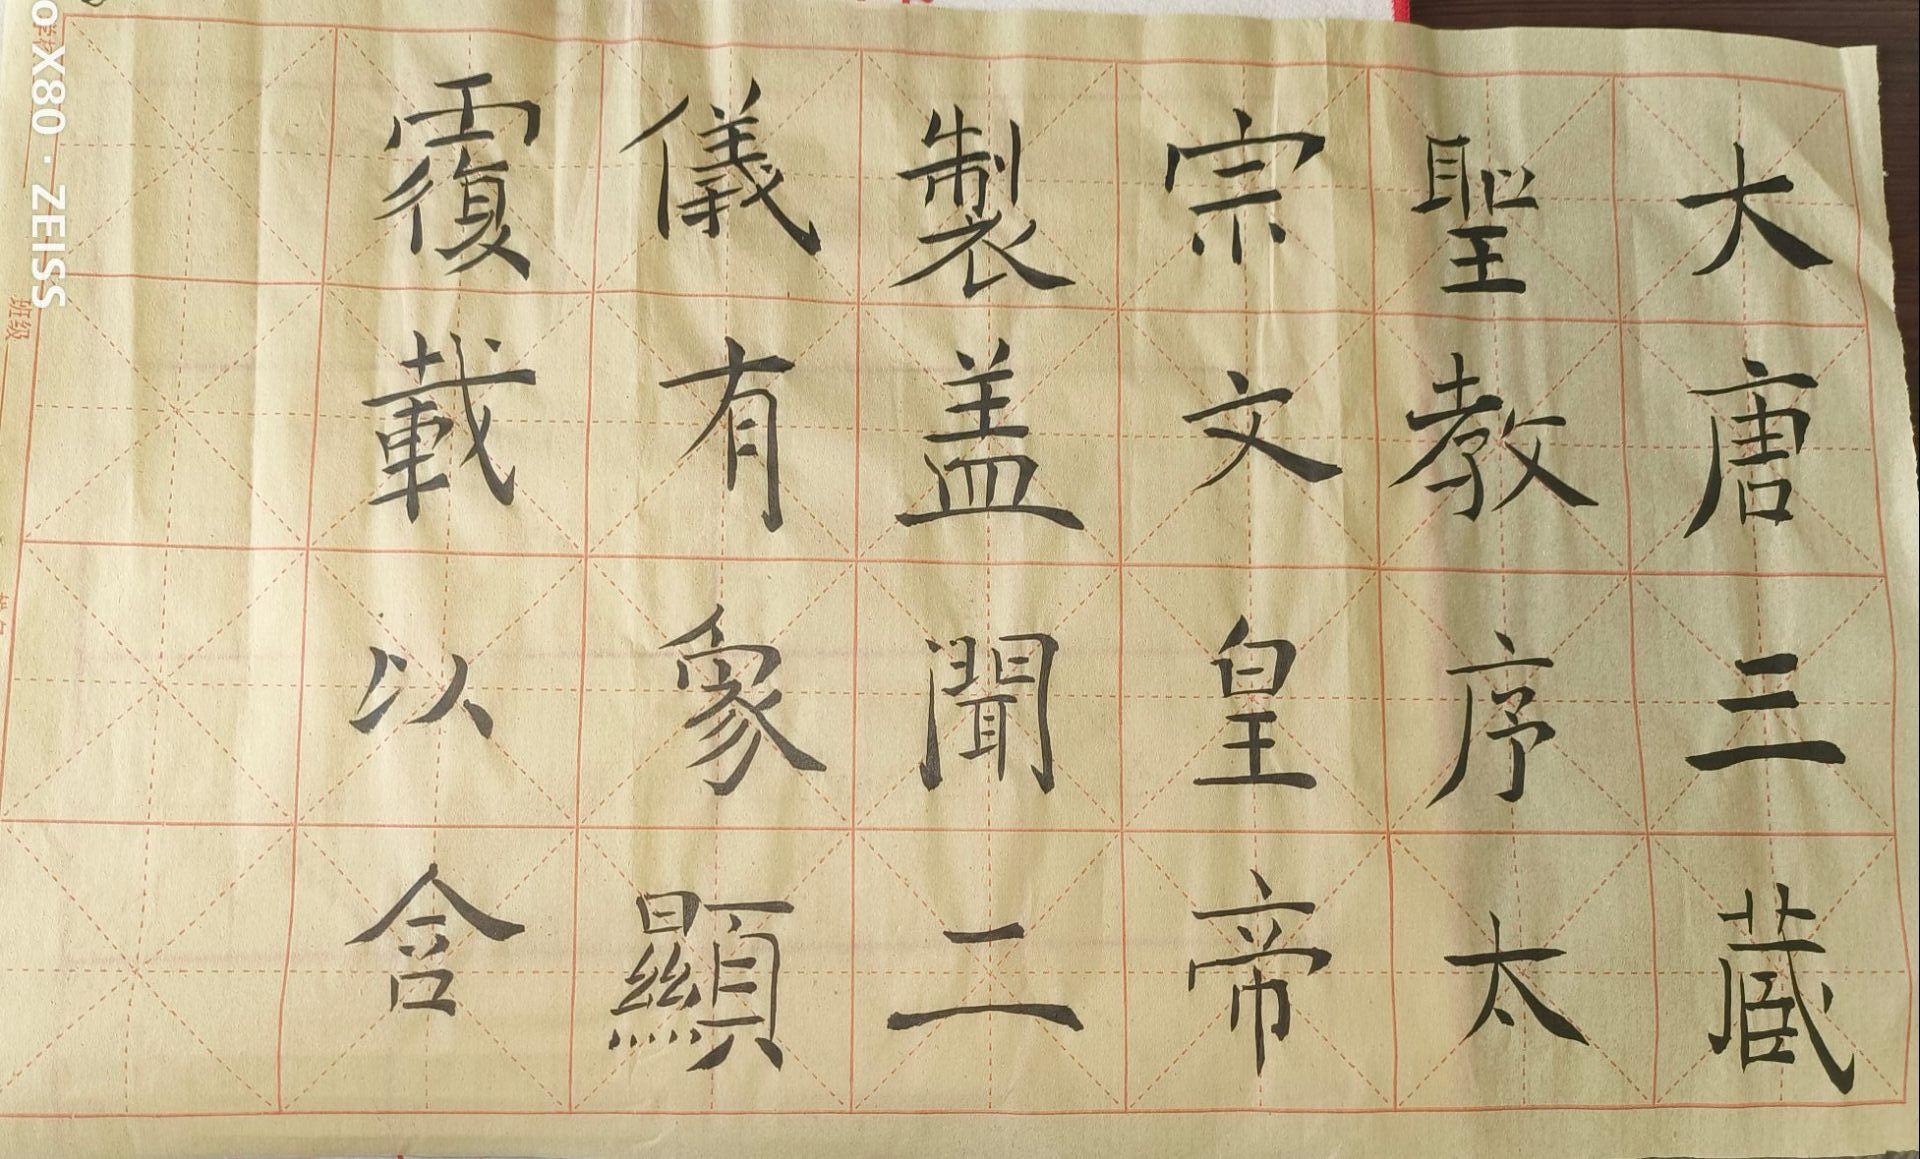 大唐三蔵
聖教序太
宗文皇帝
製盖聞二
儀有象顯
覆載以含
班级
X80 · ZEISS